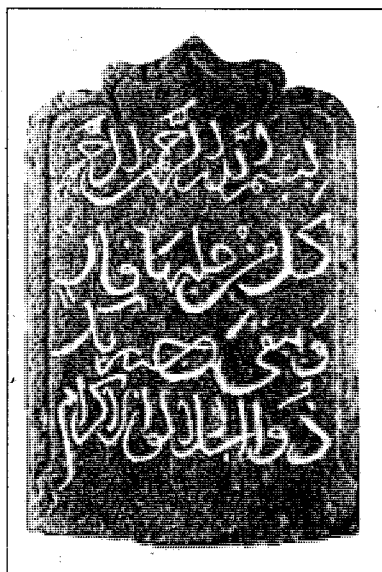 بسم الله الرحمن الرحيم
كل من عليها فان
ويبقى وجه ربك
ذو الجلال والاكرام